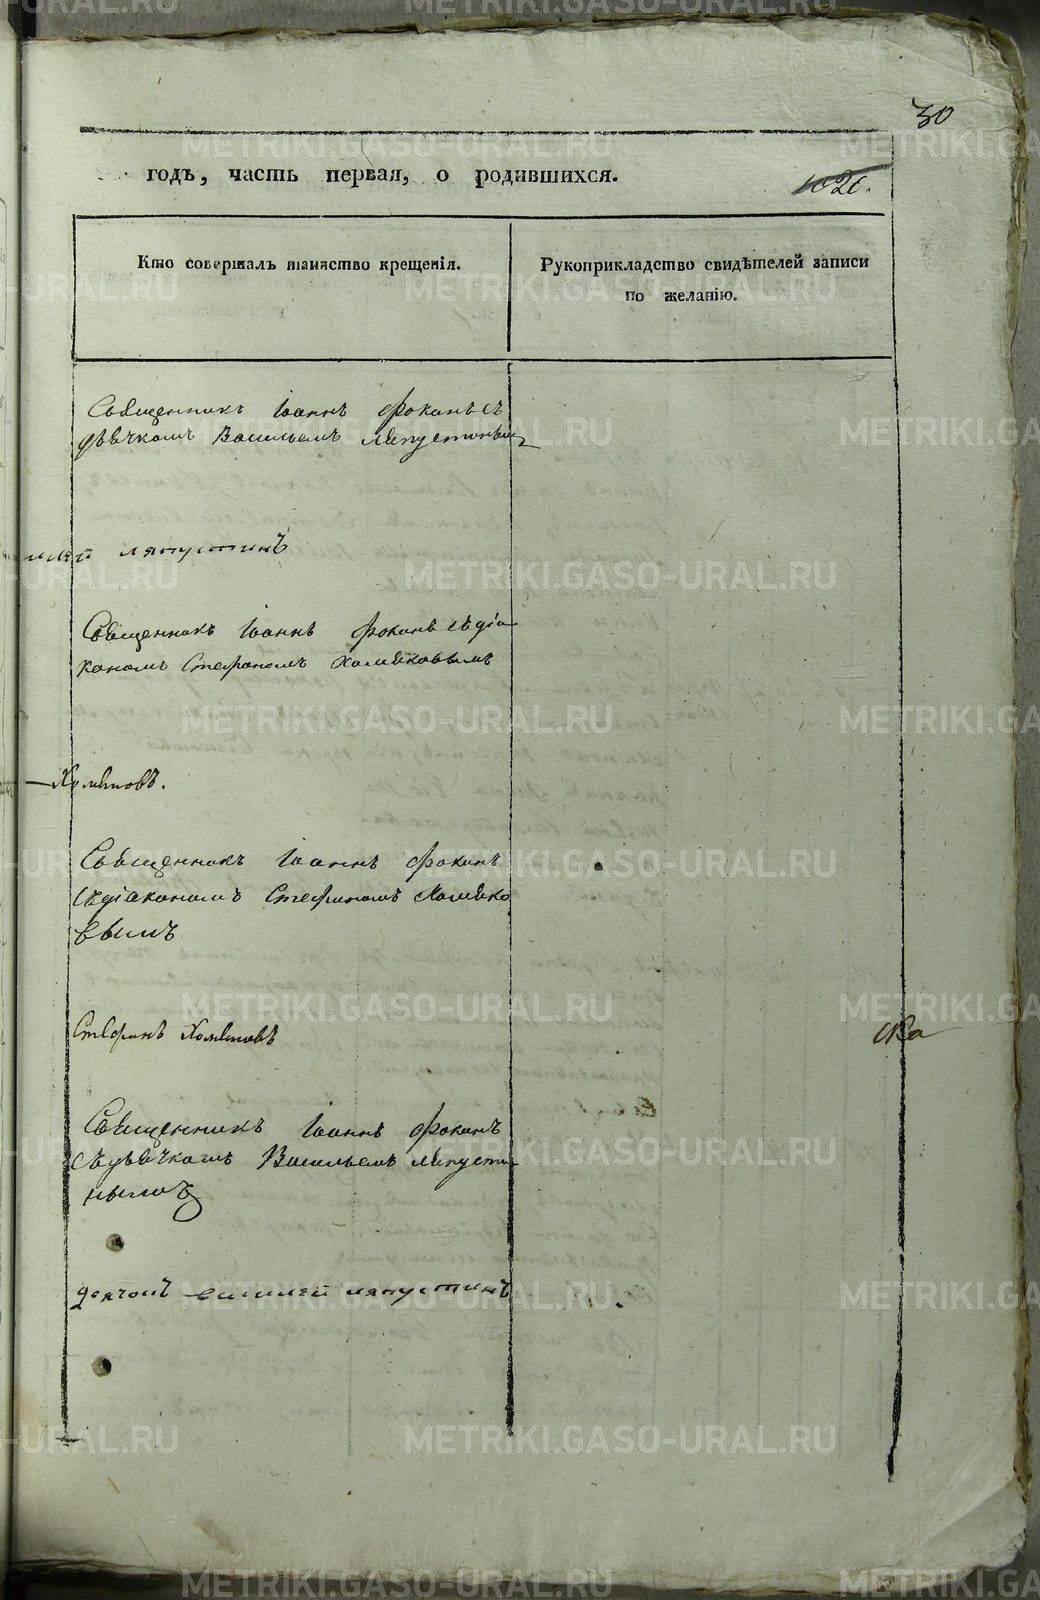 30
годъ, часть первая, о родившихся.
1020.
Кто совершалъ таинство крещенія.
Рукоприкладство свидѣтелей записи
по желанію.
Священникъ Іоаннъ Фокинъ съ
дьячкомъ Васильемъ Ляпустинымъ
ляпустинъ
Священникъ Іоаннъ Фокинъ съ діа
кономъ Стефаномъ Хомяковымъ
Хомяковъ.
Священникъ Іоаннъ Фокинъ
съ діакономъ Стефаномъ Хомяко
вымъ
Стефанъ Хомяковъ
Священникъ Іоаннъ Фокинъ
съ дьячкомъ Васильемъ Ляпусти
нымъ
дьячокъ василей ляпустинъ
METRIKI.GASO-URAL.RU